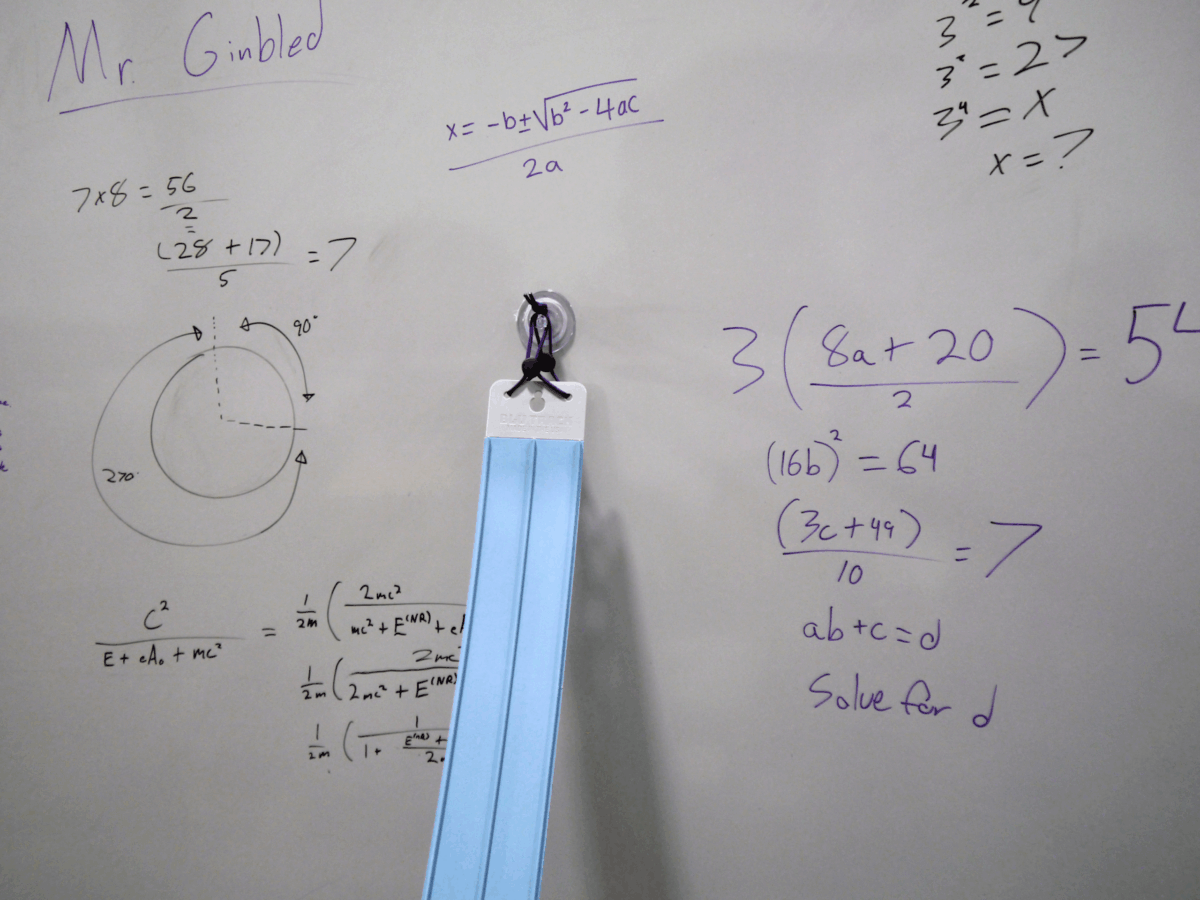 Mr. Ginbled
x = -b±√b² - 4ac
2a
3² = 9
3ˣ = 27
3⁴ = x
x = ?
7x8 = 56
2
=
(28 + 17) = 7
5
90°
270°
3(8a + 20) = 54
2
(16b)² = 64
(3c + 49) = 7
10
ab + c = d
Solve for d
C² = 1/2m ( 2mc²
E + eA₀ + mc² mc² + E⁽ᴺᴿ⁾ + eA
1/2m ( 2mc²
2mc² + E⁽ᴺᴿ⁾
1/2m ( 1
1 + E⁽ᴺᴿ⁾ +
2